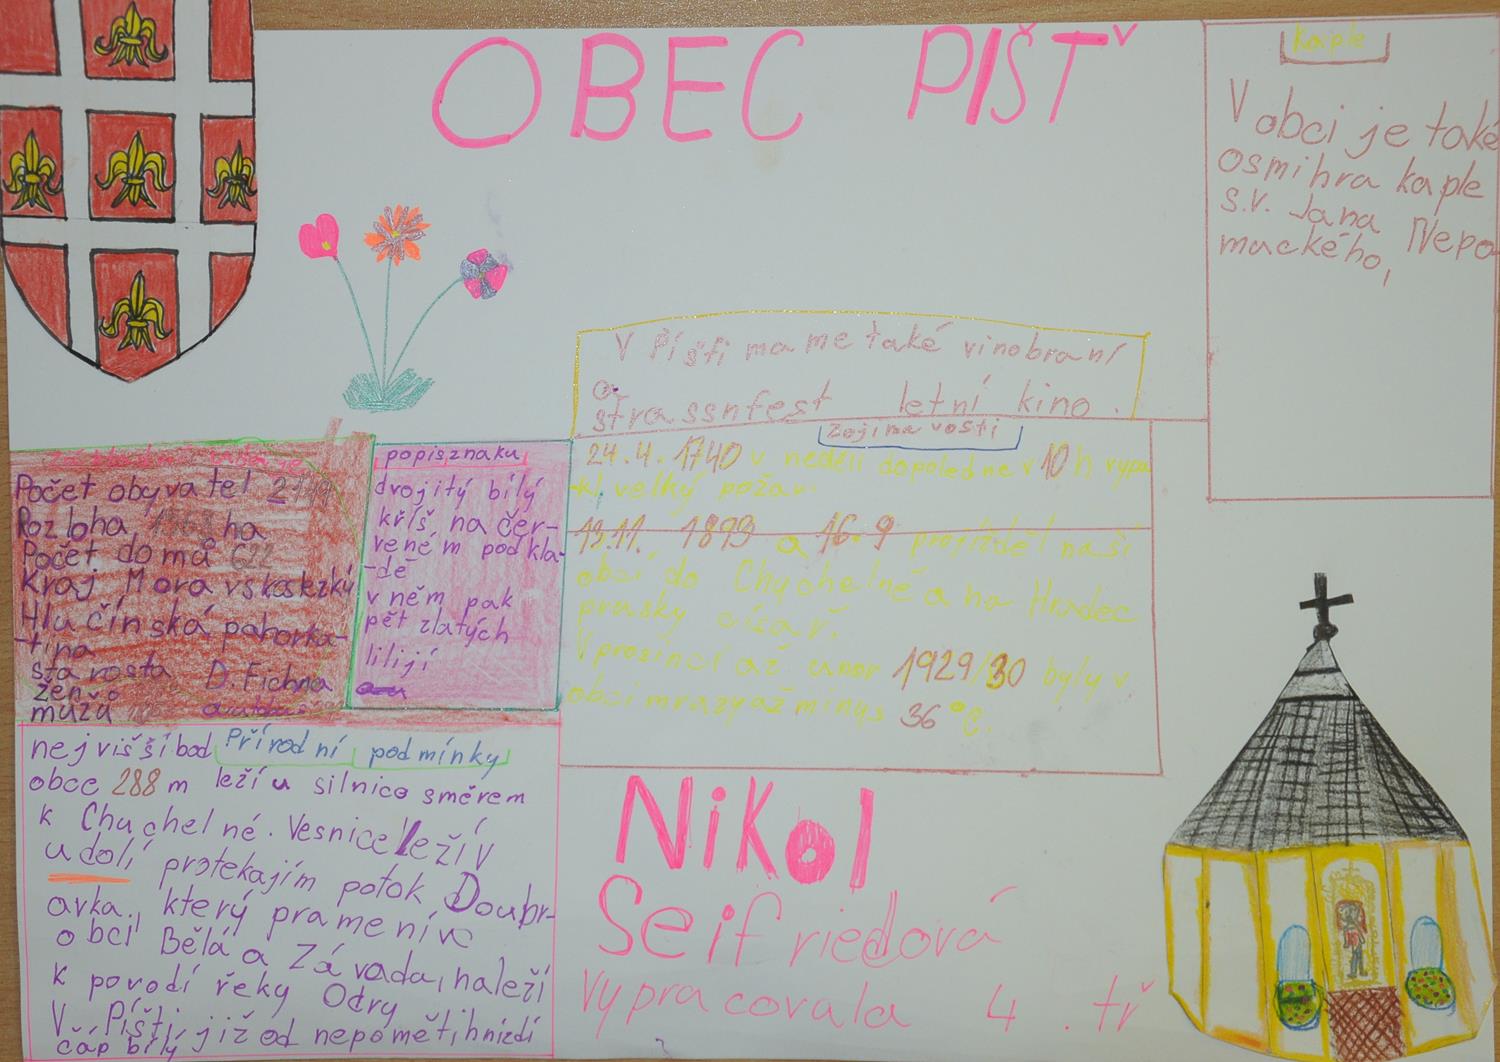 OBEC PIŠŤ
Kaple
V obci je také
osmihra kaple
s.v. Jana Nepo
mackého,
V Píšti ma me také vinobraní
a
strassnfest letní kino.
Zajíma vosti
24.4.1740 v neděli dopoledne v 10 h vypu
-kl velký požár.
13.11. 1893 a 16.9 projížděl naší
obcí do Chuchelné a na Hradec
prasky císař.
V prosinci až unor 1929/30 byly v
obci mrazy až mínus 36 °C.
Počet obyvatel
Rozloha ha
Počet domů 622
Kraj Mora vskoslezký
Hlučínská pahorka-
-tina
starosta D. Fichna
žen
mužů
popisznaku
dvojitý bílý
kříš, na čer-
veném podkla-
-dě
v něm pak
pět zlatých
lilijí
Přírodní podmínky
nejvišší bod
obce 288 m leží u silnice směrem
k Chuchelné. Vesnice leží v
udolí protekajím potok Doubr-
avka, který pramení v
obcí Bělá a Závada, naleží
k povodí řeky Odry
V Píšti, již od nepoměti hnízdí
čáp bílý
Nikol
Seifriedová
vypracovala 4. tř